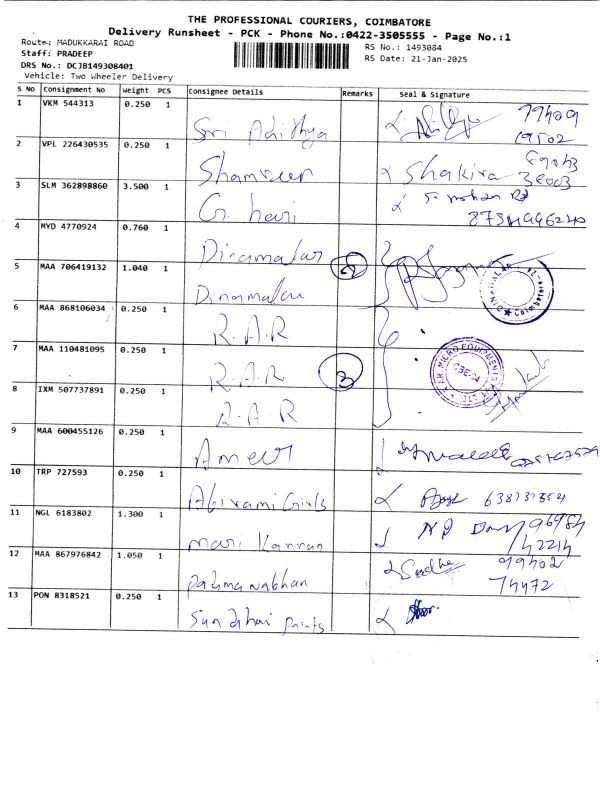 THE PROFESSIONAL COURIERS, COIMBATORE
Delivery Runsheet - PCK - Phone No.:0422-3505555 - Page No.:1
Route: MADUKKARAI ROAD
RS No.: 1493084
Staff: PRADEEP
RS Date: 21-Jan-2025
DRS No.: DCJB149308401
Vehicle: Two Wheeler Delivery
S No Consignment No Weight PCS Consignee Details Remarks Seal & Signature
1 VKM 544313 0.250 1
Sri Adithya
2 VPL 226430535 0.250 1
Shameer Shakira
3 SLM 362898860 3.500 1
G. hari
4 MYD 4770924 0.760 1
Dinamalar 2
5 MAA 706419132 1.040 1
Dinamalar
6 MAA 868106034 0.250 1
R.A.R
7 MAA 110481095 0.250 1
R.A.R 3
8 IXM 507737891 0.250 1
R.A.R
9 MAA 600455126 0.250 1
Ameer
10 TRP 727593 0.250 1
Abirami Girls
11 NGL 6183802 1.300 1
Mari Kannan
12 MAA 867976842 1.050 1
Padmanabhan
13 PON 8318521 0.250 1